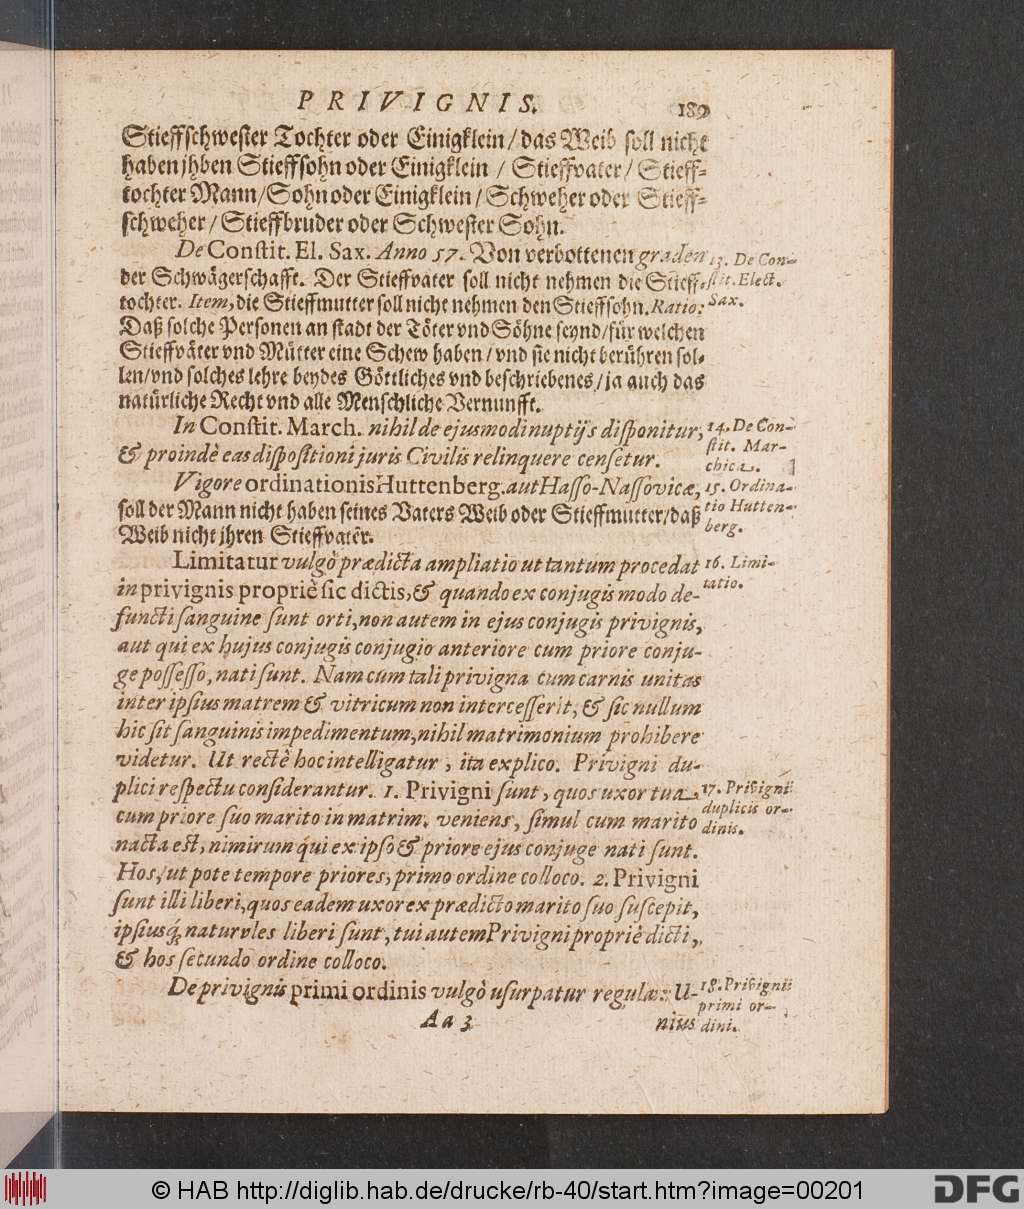 PRIVIGNIS. 189
Stieffschwester Tochter oder Einigklein / das Weib soll nicht
haben jhben Stieffsohn oder Einigklein / Stieffvater / Stieff-
tochter Mann / Sohn oder Einigklein / Schweher oder Stieff-
schweher / Stieffbruder oder Schwester Sohn.
De Constit. El. Sax. Anno 57. Von verbottenen graden
der Schwägerschafft. Der Stieffvater soll nicht nehmen die Stieff-
tochter. Item, die Stieffmutter soll nicht nehmen den Stieffsohn. Ratio:
Daß solche Personen an stadt der Töter vnd Söhne seynd / für welchen
Stieffväter vnd Mütter eine Schew haben / vnd sie nicht berühren sol-
len / vnd solches lehre beydes Göttliches vnd beschriebenes / ja auch das
natürliche Recht vnd alle Menschliche Vernunfft.
13. De Con-
stit. Elect.
Sax.
In Constit. March. nihil de ejusmodi nuptijs disponitur,
& proindè eas dispositioni juris Civilis relinquere censetur.
14. De Con-
stit. Mar-
chica.
Vigore ordinationis Huttenberg. aut Hasso-Nassovicæ,
soll der Mann nicht haben seines Vaters Weib oder Stieffmutter / daß
Weib nicht jhren Stieffvater.
15. Ordina-
tio Hutten-
berg.
Limitatur vulgò prædicta ampliatio ut tantum procedat
in privignis propriè sic dictis, & quando ex conjugis modo de-
functi sanguine sunt orti, non autem in ejus conjugis privignis,
aut qui ex hujus conjugis conjugio anteriore cum priore conju-
ge possesso, nati sunt. Nam cum tali privigna cum carnis unitas
inter ipsius matrem & vitricum non intercesserit, & sic nullum
hic sit sanguinis impedimentum, nihil matrimonium prohibere
videtur. Ut rectè hoc intelligatur, ita explico. Privigni du-
plici respectu considerantur. 1. Privigni sunt, quos uxor tua
cum priore suo marito in matrim. veniens, simul cum marito
nacta est, nimirum qui ex ipso & priore ejus conjuge nati sunt.
Hos, ut pote tempore priores, primo ordine colloco. 2. Privigni
sunt illi liberi, quos eadem uxor ex prædicto marito suo suscepit,
ipsiusq́; naturales liberi sunt, tui autem Privigni propriè dicti,
& hos secundo ordine colloco.
16. Limi-
tatio.
17. Privigni
duplicis or-
dinis.
De privignis primi ordinis vulgò usurpatur regula: U-
18. Privigni
primi or-
dini.
Aa 3 nius
© HAB http://diglib.hab.de/drucke/rb-40/start.htm?image=00201
DFG